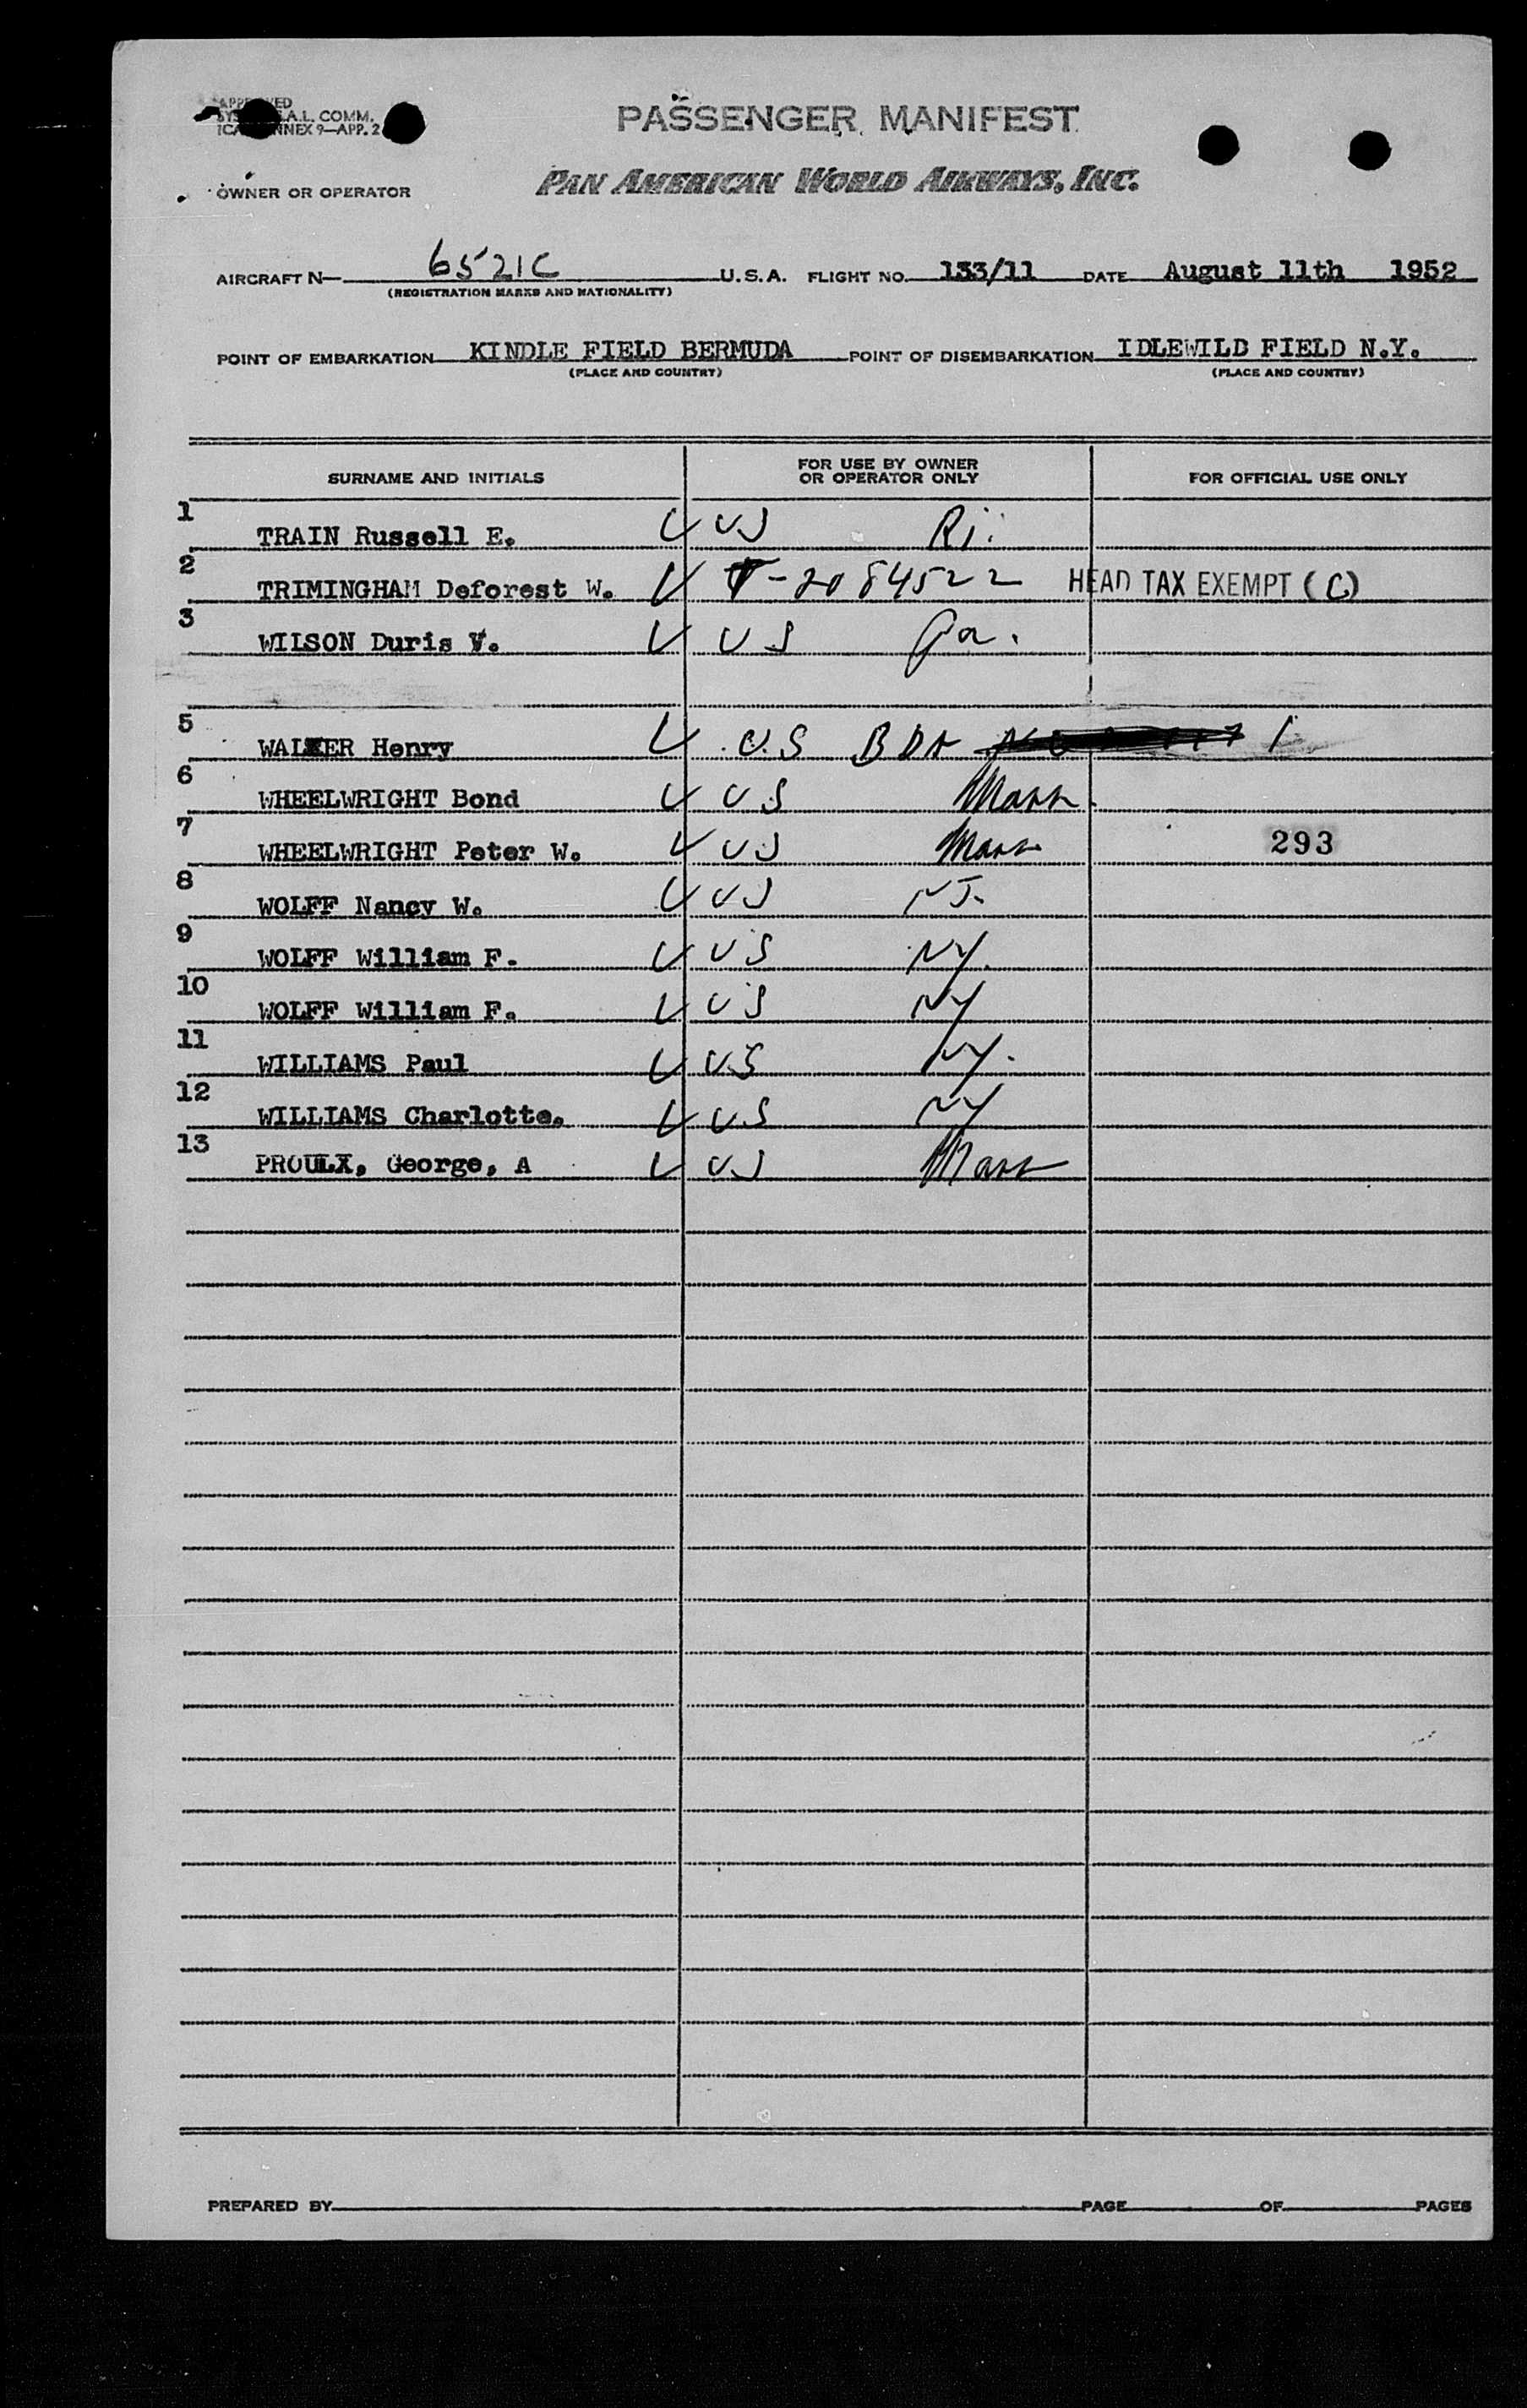 APPROVED
A.L. COMM.
ANNEX 9—APP. 2
PASSENGER MANIFEST
OWNER OR OPERATOR PAN AMERICAN WORLD AIRWAYS, INC.
AIRCRAFT N— 6521C U.S.A. FLIGHT NO. 133/11 DATE August 11th 1952
(REGISTRATION MARKS AND NATIONALITY)
POINT OF EMBARKATION KINDLE FIELD BERMUDA POINT OF DISEMBARKATION IDLEWILD FIELD N.Y.
(PLACE AND COUNTRY) (PLACE AND COUNTRY)
SURNAME AND INITIALS FOR USE BY OWNER OR OPERATOR ONLY FOR OFFICIAL USE ONLY
1 TRAIN Russell E. US Ri.
2 TRIMINGHAM Deforest W. V-2084522 HEAD TAX EXEMPT (C)
3 WILSON Duris V. US
5 WALKER Henry U.S BDA 1
6 WHEELWRIGHT Bond US Mass
7 WHEELWRIGHT Peter W. US Mass 293
8 WOLFF Nancy W. US NJ.
9 WOLFF William F. US NY.
10 WOLFF William F. US NY
11 WILLIAMS Paul US NY.
12 WILLIAMS Charlotte. US NY
13 PROULX, George, A US Mass
PREPARED BY PAGE OF PAGES